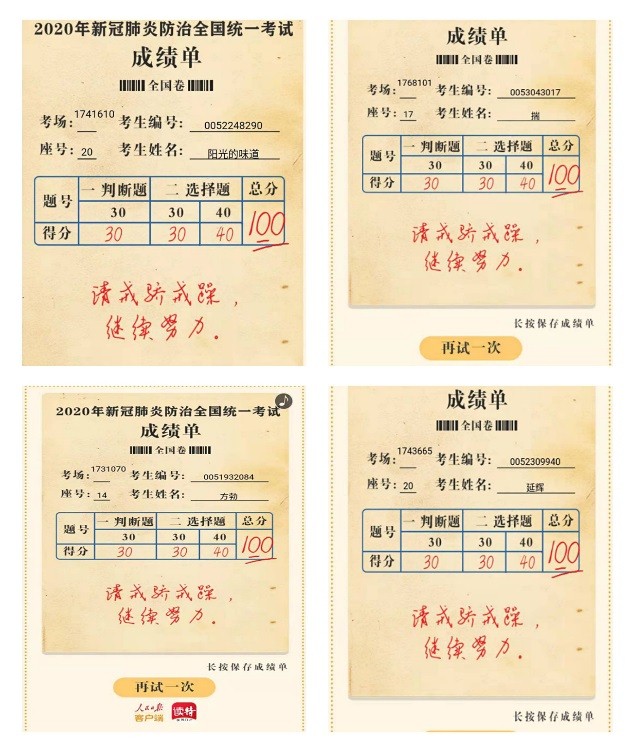 2020年新冠肺炎防治全国统一考试
成绩单
全国卷
考场: 1741610 考生编号: 0052248290
座号: 20 考生姓名: 阳光的味道
题号 一 判断题 二 选择题 总分
30 30 40
得分 30 30 40 100
请戒骄戒躁，
继续努力.
成绩单
全国卷
考场: 1768101 考生编号: 0053043017
座号: 17 考生姓名: 揣
题号 一 判断题 二 选择题 总分
30 30 40
得分 30 30 40 100
请戒骄戒躁，
继续努力.
长按保存成绩单
再试一次
2020年新冠肺炎防治全国统一考试
成绩单
全国卷
考场: 1731070 考生编号: 0051932084
座号: 14 考生姓名: 方勃
题号 一 判断题 二 选择题 总分
30 30 40
得分 30 30 40 100
请戒骄戒躁，
继续努力.
长按保存成绩单
再试一次
人民日报
客户端
读特
成绩单
全国卷
考场: 1743665 考生编号: 0052309940
座号: 20 考生姓名: 延辉
题号 一 判断题 二 选择题 总分
30 30 40
得分 30 30 40 100
请戒骄戒躁，
继续努力.
长按保存成绩单